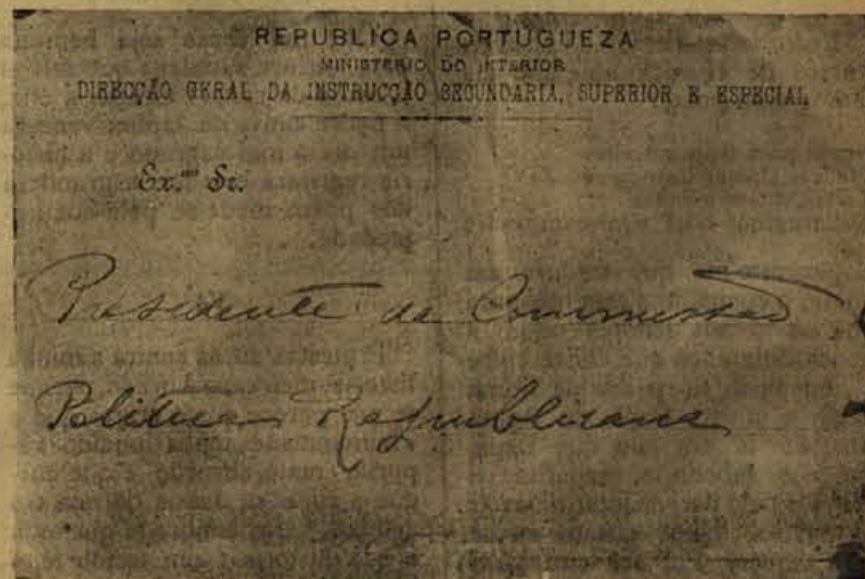 REPUBLICA PORTUGUEZA
MINISTERIO DO INTERIOR
DIRECÇÃO GERAL DA INSTRUCÇÃO SECUNDARIA, SUPERIOR E ESPECIAL
Ex.mo Sr.
Presidente da Commissão
Politica Republicana